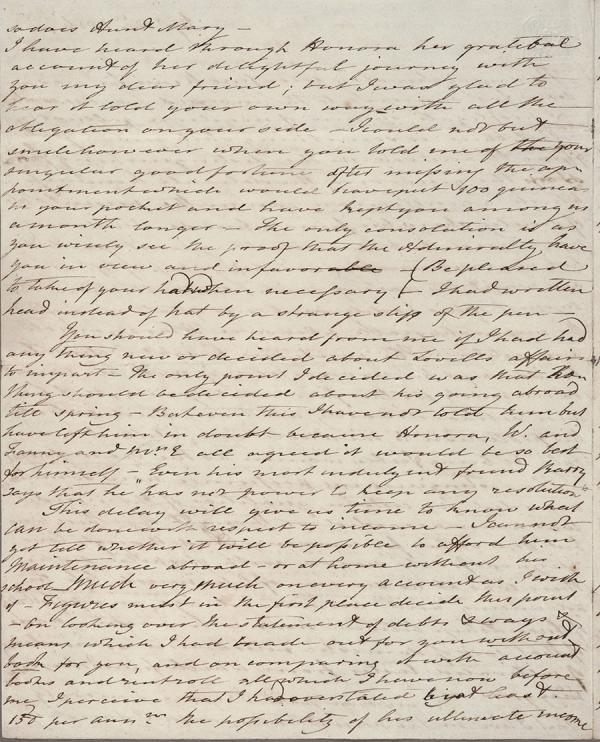 so does Aunt Mary –
I have heard through Honora her grateful
account of her delightful journey with
you my dear friend; but I was glad to
hear it told your own way with all the
obligation on your side – I could not but
smile however when you told me of the your
singular good fortune after missing the ap-
pointment which would have put 100 guineas
in your pocket and have kept you among us
a month longer – The only consolation is as
you wisely see the proof that the Admiralty have
you in view and in favorable – (Be pleased
to take of your hat when necessary (– I had written
head instead of hat by a strange slip of the pen –
You should have heard from me if I had had
any thing new or decided about Lovells affairs
to impart – The only point I decided was that no
thing should be decided about his going abroad
till spring – But even this I have not told him but
have left him in doubt because Honora, W. and
Fanny and Mrs E all agreed it would be so best
for himself – Even his most indulgent friend Barry
says that he "has not power to keep any resolution"
This delay will give us time to know what
can be done with respect to income – I cannot
yet tell whether it will be possible to afford him
Maintenance abroad – or at home without his
school Much very much on every account as I wish
it – Figures must in the first place decide this point
– On looking over the statement of debts & ways &
means which I had made out for you without
book for you, and on comparing it with account
books and rentroll all which I have now before
me I perceive that I had overstated by at least
150 per annm the possibility of his ultimate income